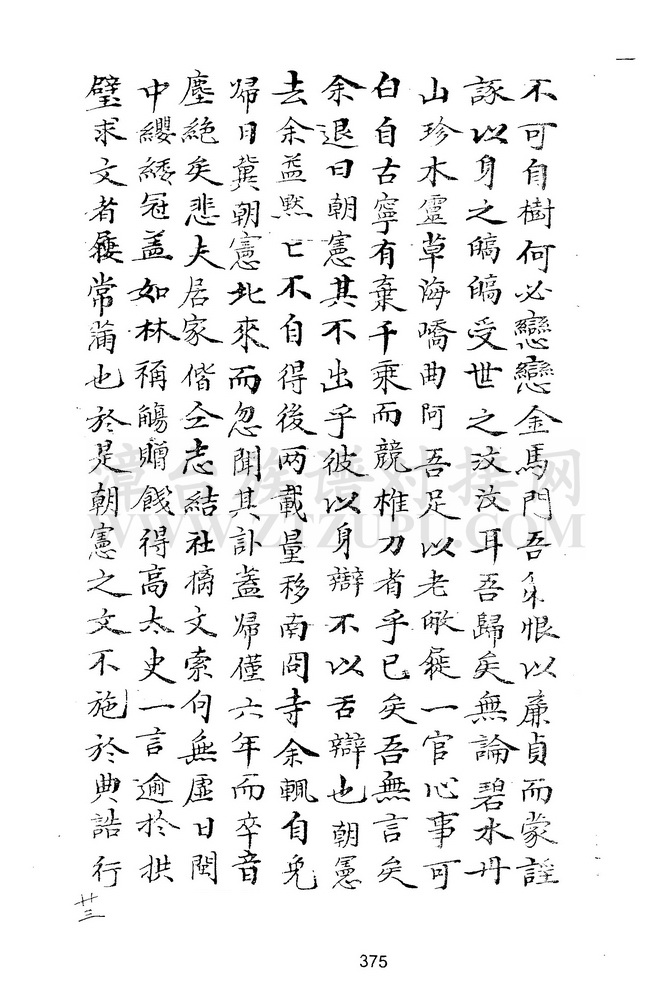 不可自樹何必戀戀金馬門吾朱恨以廉貞而蒙誣
諑以身之皜皜受世之汶汶耳吾歸矣無論碧水丹
山珍木靈草海嶠曲阿吾足以老敝蓰一官心事可
白自古寧有棄千乘而競椎刀者乎已矣吾無言矣
余退曰朝憲其不出乎彼以身辯不以舌辯也朝憲
去余益黙亡不自得後两載量移南冏寺余輒自免
歸日冀朝憲北來而忽聞其訃葢歸僅六年而卒音
塵絶矣悲夫居家偕仝志結社摛文索句無虛日閩
中纓緌冠葢如林稱觴贈餞得高太史一言逾於拱
璧求文者屨常滿也於是朝憲之文不施於典誥行
廿三
375
缙台族谱对接网
WWW.ZTZUPU.COM